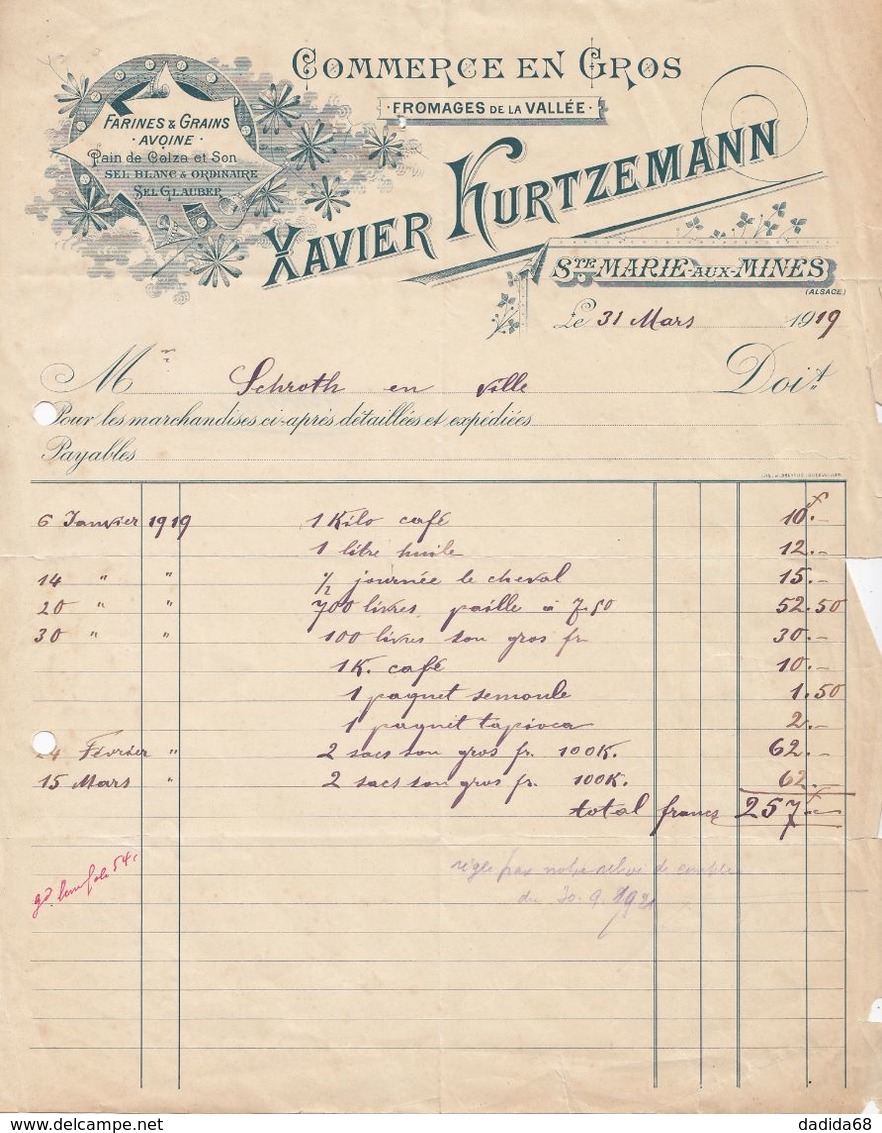 COMMERCE EN GROS
FROMAGES DE LA VALLÉE
FARINES & GRAINS
AVOINE
Pain de Colza et Son
SEL BLANC & ORDINAIRE
SEL GLAUBER
XAVIER KURTZEMANN
STE MARIE-AUX-MINES
(ALSACE)
Le 31 Mars 1919
M r Schroth en ville Doit
Pour les marchandises ci-après détaillées et expédiées
Payables
6 Janvier 1919 1 Kilo café 10f.-
1 litre huile 12.-
14 " " 1/2 journée le cheval 15.-
20 " " 700 livres paille à 7.50 52.50
30 " " 100 livres son gros fr 30.-
1 K. café 10.-
1 paquet semoule 1.50
1 paquet tapioca 2.-
24 Février " 2 sacs son gros fr. 100K. 62.-
15 Mars " 2 sacs son gros fr. 100K. 62.-
total francs 257f
54
règlé par notre relevé de comptes
du 30.9.1921
www.delcampe.net
dadida68